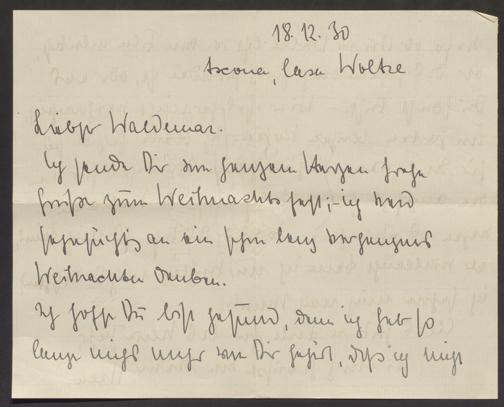 18.12.30
Ascona, Casa Woltke
Liebster Waldemar.
Ich sende Dir von ganzem Herzen frohe
Grüße zum Weihnachtsfest, – ich werd
sehnsüchtig an ein schon lang vergangnes
Weihnachten denken.
Ich hoffe Du bist gesund, denn ich hab so
lange nichts mehr von Dir gehört, daß ich nicht